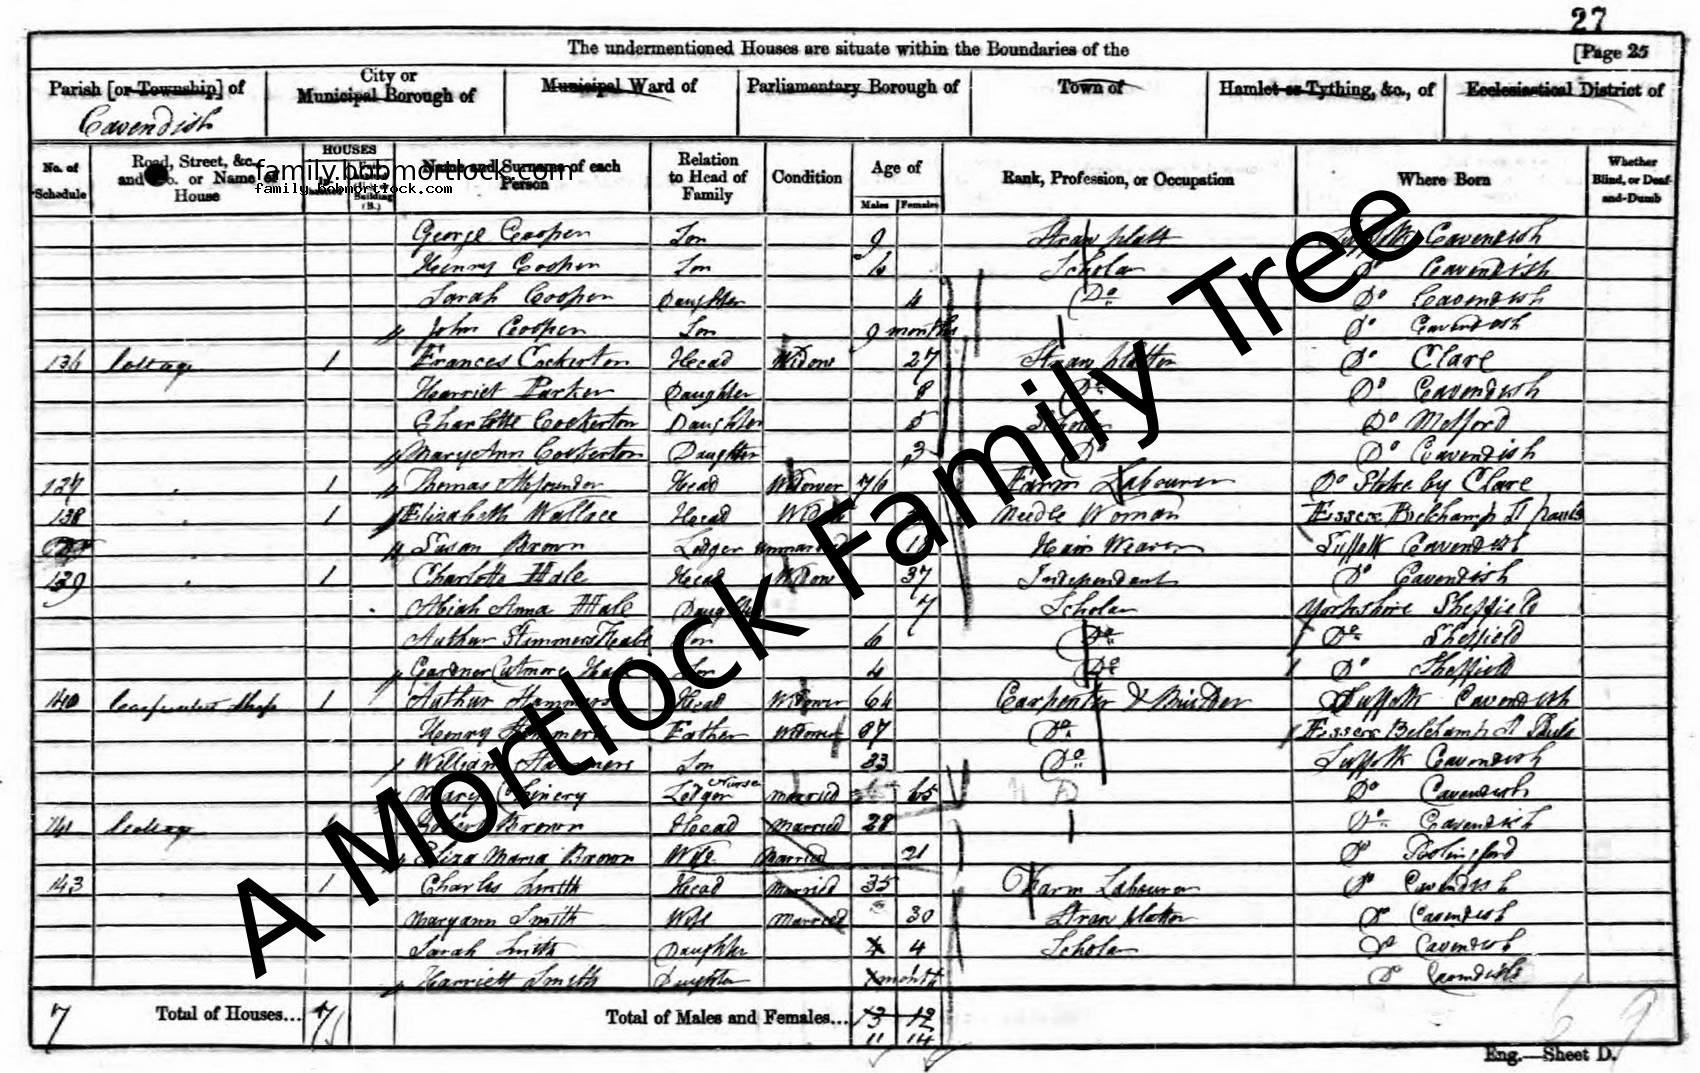 27
The undermentioned Houses are situate within the Boundaries of the [Page 25
Parish [or Township] of City or Municipal Borough of Municipal Ward of Parliamentary Borough of Town of Hamlet or Tything, &c., of Ecclesiastical District of
Cavendish
No. of Schedule Road, Street, &c., and No. or Name of House HOUSES Building (B.) Name and Surname of each Person Relation to Head of Family Condition Age of Males Females Rank, Profession, or Occupation Where Born Whether Blind, or Deaf-and-Dumb
family.bobmortlock.com
family.bobmortlock.com
George Cooper Son 9 Straw platt Suffolk Cavendish
Henry Cooper Son 6 Scholar Do Cavendish
Sarah Cooper Daughter 4 Do Cavendish
John Cooper Son 9 months Do Cavendish
136 Cottage 1 Frances Cockerton Head Widow 27 Straw platter Do Clare
Harriet Parker Daughter 8 Do Do Cavendish
Charlotte Cockerton Daughter 5 Scholar Do Melford
Mary Ann Cockerton Daughter 3 Do Do Cavendish
137 1 Thomas Head Widower 76 Farm Labourer Do Stoke by Clare
138 1 Elizabeth Wallace Head Widow Needle Woman Essex Belchamp St Pauls
Susan Brown Lodger unmarried Hair Weaver Suffolk Cavendish
139 1 Charlotte Hale Head Widow 37 Independant Do Cavendish
Abiah Anna Hale Daughter 7 Scholar Yorkshire Sheffield
Authur Son 6 Do Do Sheffield
Gardner Hale Son 4 Do Do Sheffield
140 Carpenters Shop 1 Authur Hammers Head Widower 64 Carpenter & Builder Suffolk Cavendish
Henry Hammers Father Widower 87 Do Essex Belchamp St Pauls
William Hammers Son 33 Do Suffolk Cavendish
Mary Chinery Lodger Nurse Married 65 Do Cavendish
141 Cottage Robert Brown Head Married 28 Do Cavendish
Eliza Maria Brown Wife Married 21 Do
143 1 Charles Smith Head Married 35 Farm Labourer Do Cavendish
Maryann Smith Wife Married 30 Straw platter Do Cavendish
Sarah Smith Daughter 4 Scholar Do Cavendish
Harriett Smith Daughter month Do Cavendish
7 Total of Houses... 7 Total of Males and Females... 13 12
11 14
Eng.—Sheet D.
A Mortlock Family Tree